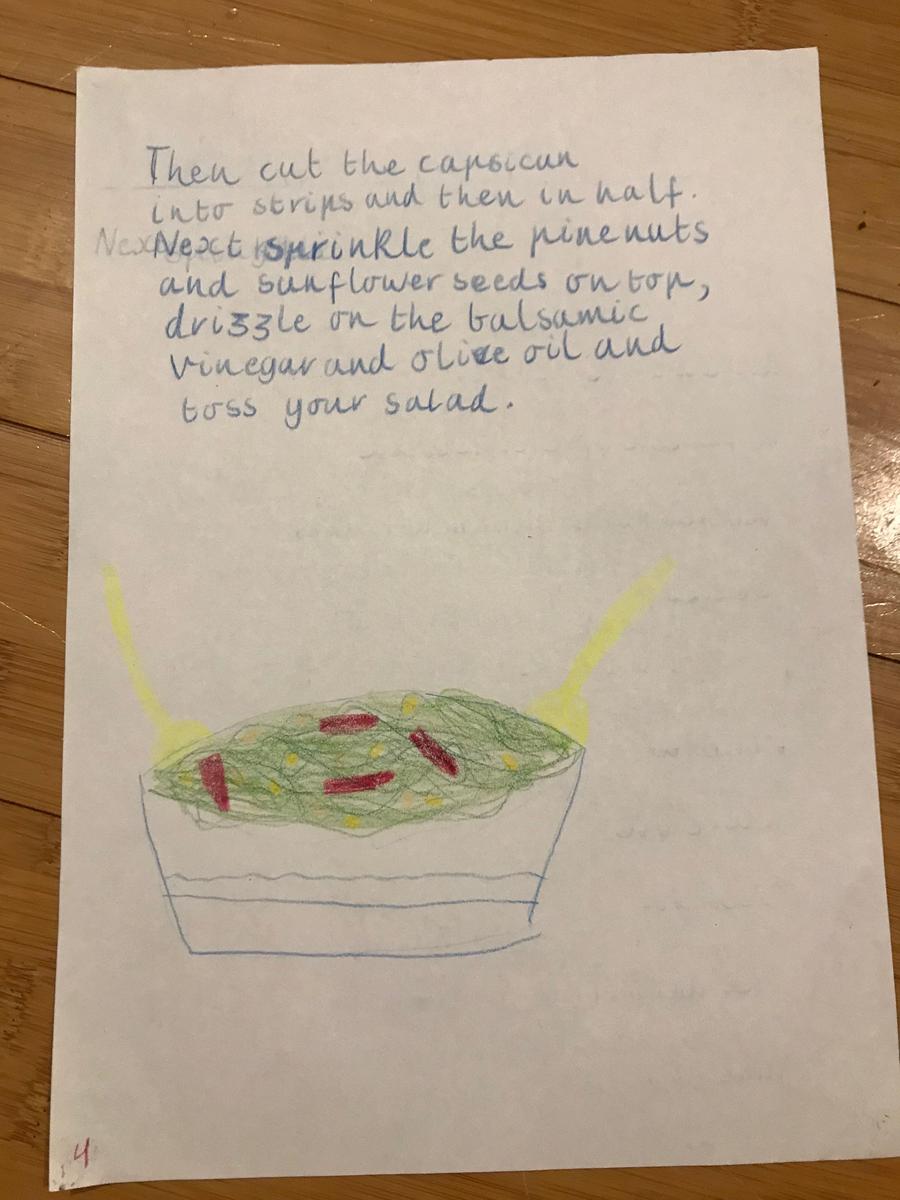 Then cut the capsicun
into strips and then in half.
Next sprinkle the pinenuts
and sunflower seeds on top,
drizzle on the balsamic
vinegar and olive oil and
toss your salad.
4